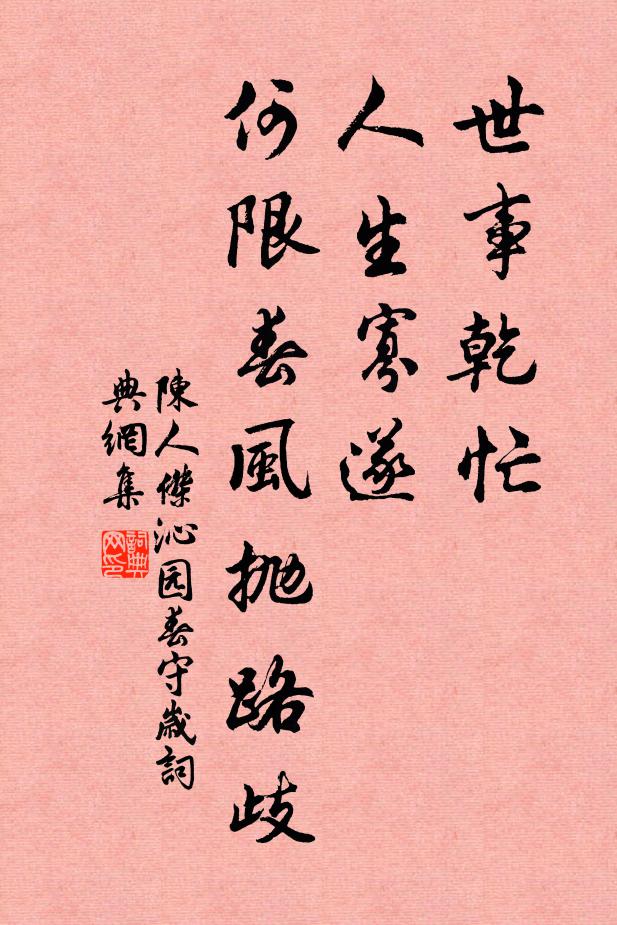 世事乾忙
人生寡遂
何限春風抛路歧
陳人傑沁园春守歲詞
典網集
詞典网印